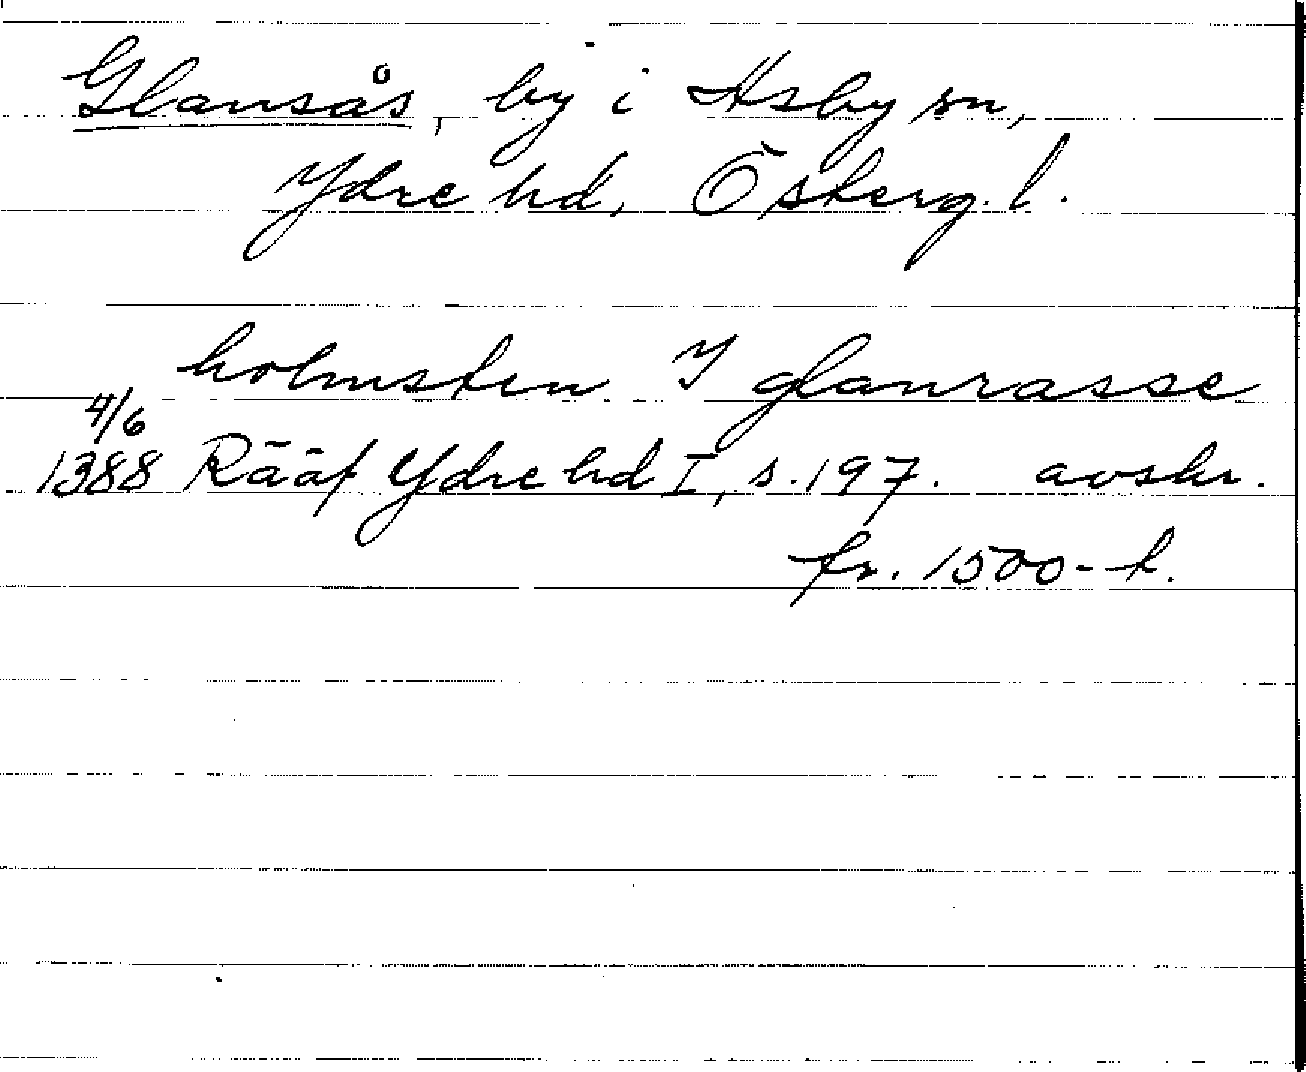 Glansås, by i Asby sn,
Ydre hd, Österg. l.
holmsten I glanrasse
4/6
1388 Rääf Ydre hd I, s. 197. avskr.
fr. 1500-t.